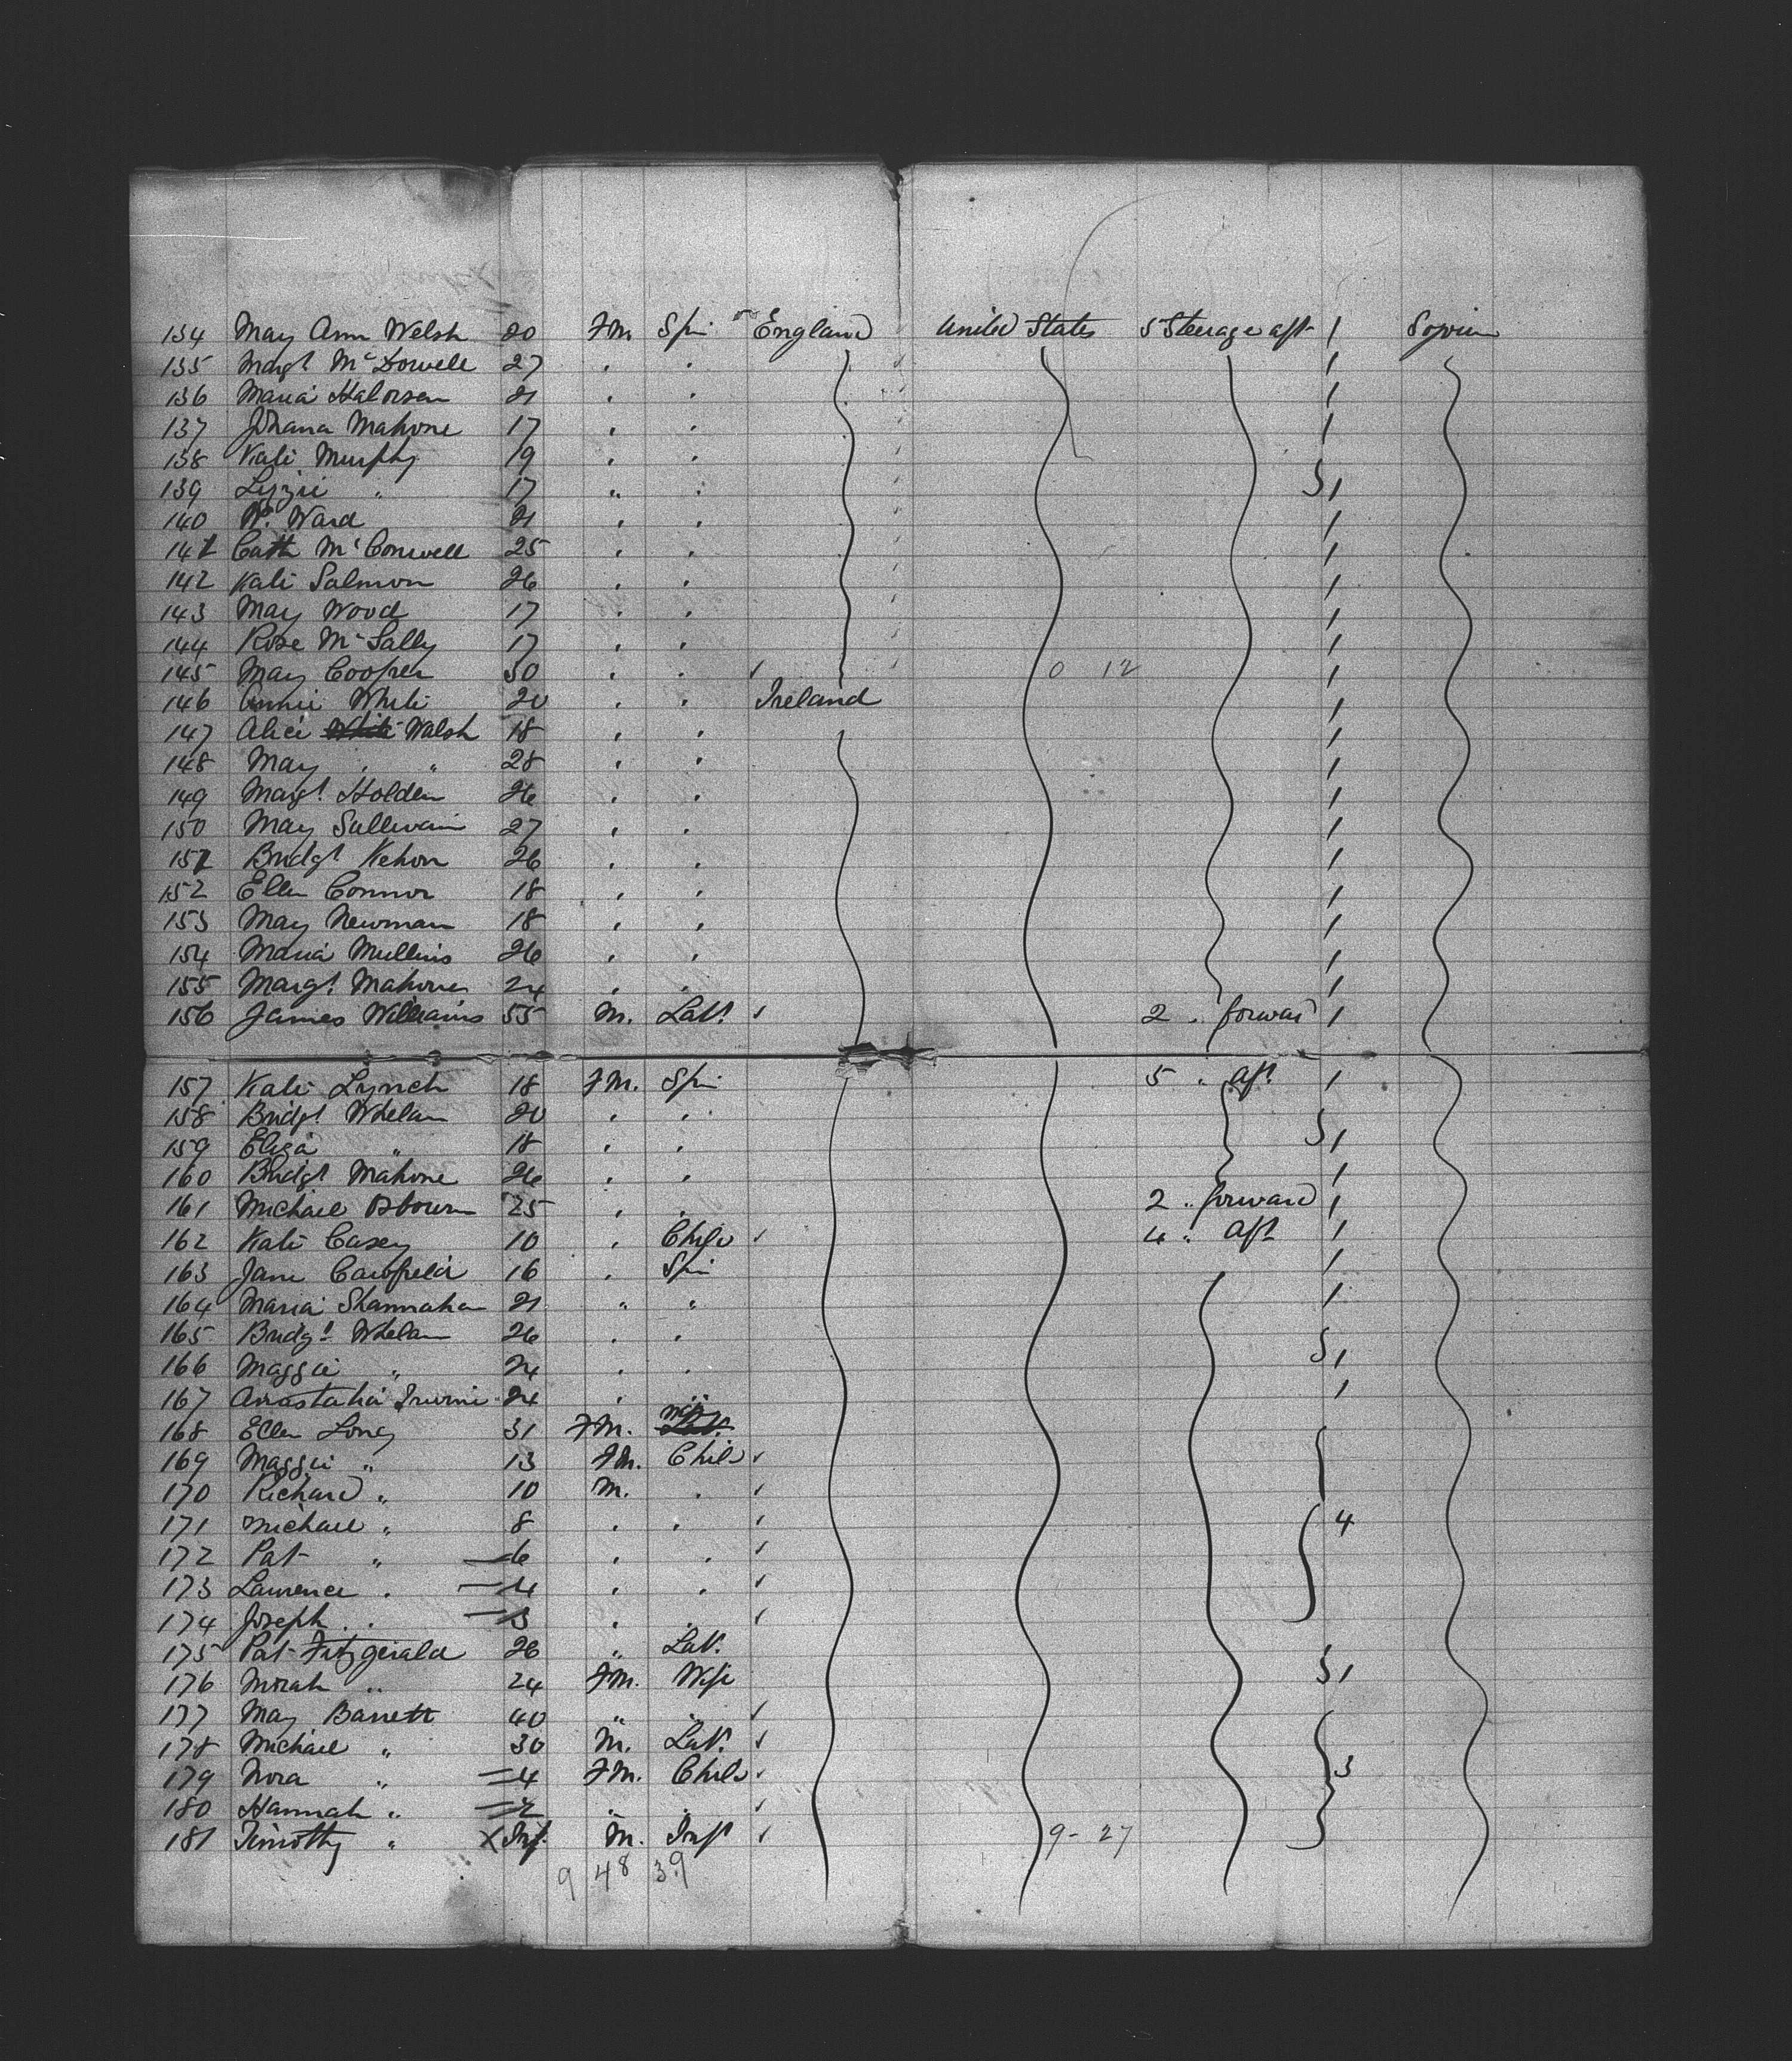 134 May Ann Welsh 20 FM. Spin England United States 5 Steerage aft 1 Sojourn
135 Margt McDowell 27 " " 1
136 Maria Halorsen 21 " " 1
137 Johana Mahone 17 " " 1
138 Kate Murphy 19 " "
139 Lizzie " 17 " " 1
140 W. Ward 21 " " 1
141 Cath McConwell 25 " " 1
142 Kate Salmon 26 " " 1
143 May Wood 17 " " 1
144 Rose McSally 17 " " 1
145 May Cooper 30 " " 0 12 1
146 Annie White 20 " " Ireland 1
147 Alice White Walsh 18 " " 1
148 May " " 28 " " 1
149 Margt. Holden 26 " " 1
150 May Sullivan 27 " " 1
151 Bridgt Kehon 26 " " 1
152 Ellen Connor 18 " " 1
153 May Newman 18 " " 1
154 Maria Mullins 26 " " 1
155 Margt. Mahone 24 " " 1
156 James Williams 55 M. Lab. 2 " forward 1
157 Kate Lynch 18 FM. Spin 5 " aft 1
158 Bridgt. Whelan 20 " "
159 Eliza " 18 " " 1
160 Bridgt Mahone 26 " " 1
161 Michael Osbourn 25 " " 2 " forward 1
162 Kate Casey 10 " Child 4 " aft 1
163 Jane Cawfield 16 " Spin 1
164 Maria Shannahan 21 " " 1
165 Bridgt. Whelan 26 " "
166 Maggie " 24 " " 1
167 Anastatia Irwine 24 " " 1
168 Ellen Long 31 FM. Wife Lab.
169 Maggie " 13 FM. Child
170 Richard " 10 M. "
171 Michael " 8 " " 4
172 Pat " 6 " "
173 Lawrence " 4 " "
174 Joseph " 3 " "
175 Pat Fitzgerald 26 " Lab.
176 Norah " 24 FM. Wife 1
177 May Barrett 40 " "
178 Michael " 30 M. Lab.
179 Nora " 4 FM. Child 3
180 Hannah " 2 " "
181 Timothy " Inf. M. Inft 9 - 27
9 48 39